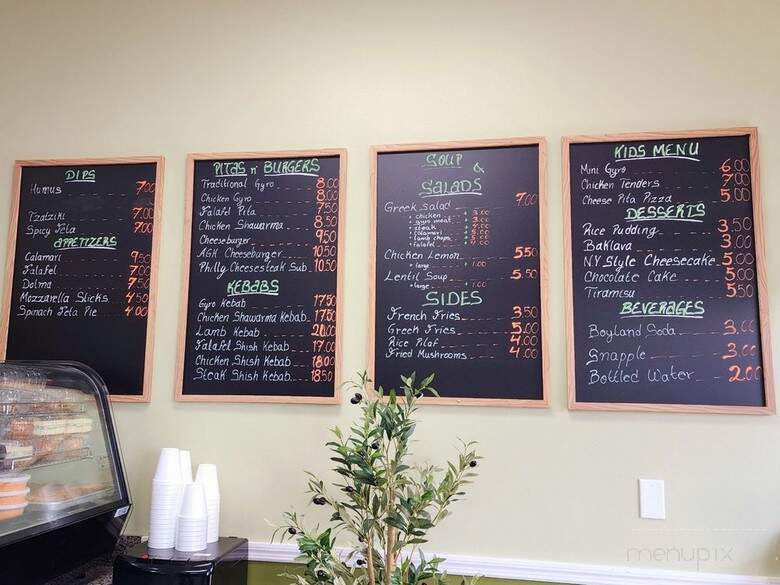 DIPS
Humus 7.00
Tzatziki 7.00
Spicy Feta 7.00
APPETIZERS
Calamari 9.50
Falafel 7.00
Dolma 7.50
Mozzarella Sticks 4.50
Spinach Feta Pie 4.00
PITAS n' BURGERS
Traditional Gyro 8.00
Chicken Gyro 8.00
Falafel Pita 7.50
Chicken Shawarma 8.50
Cheeseburger 9.50
AGH Cheeseburger 10.50
Philly Cheesesteak Sub 10.50
KEBABS
Gyro Kebab 17.50
Chicken Shawarma Kebab 17.50
Lamb Kebab 21.00
Falafel Shish Kebab 17.00
Chicken Shish Kebab 18.00
Steak Shish Kebab 18.50
SOUP &
SALADS
Greek Salad 7.00
+ chicken + 3.00
+ gyro meat
+ steak
+ calamari
+ lamb chops
+ falafel
Chicken Lemon 5.50
+ large + 1.00
Lentil Soup 5.50
+ large + 1.00
SIDES
French Fries 3.50
Greek Fries 5.00
Rice Pilaf 4.00
Fried Mushrooms 4.00
KIDS MENU
Mini Gyro 6.00
Chicken Tenders 7.00
Cheese Pita Pizza 5.00
DESSERTS
Rice Pudding 3.50
Baklava 3.00
NY Style Cheesecake 5.00
Chocolate Cake 5.00
Tiramisu 5.50
BEVERAGES
Boyland Soda 3.00
Snapple 3.00
Bottled Water 2.00
menupix